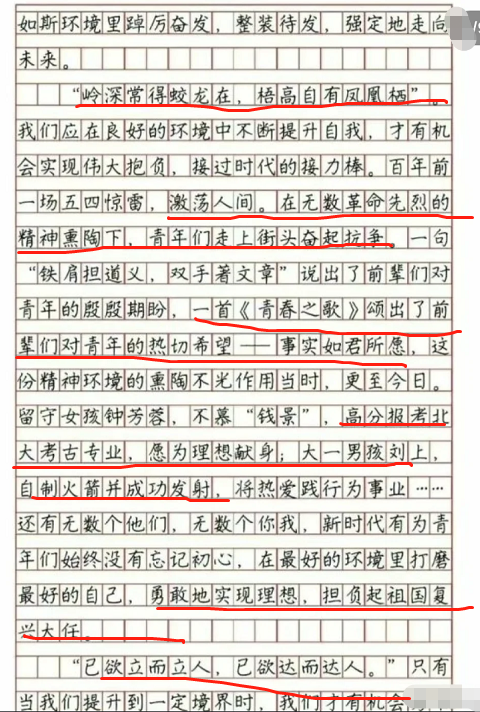 如斯环境里踔厉奋发，整装待发，强定地走向
未来。
“岭深常得蛟龙在，梧高自有凤凰栖”。
我们应在良好的环境中不断提升自我，才有机
会实现伟大抱负，接过时代的接力棒。百年前
一场五四惊雷，激荡人间。在无数革命先烈的
精神熏陶下，青年们走上街头奋起抗争。一句
“铁肩担道义，双手著文章”说出了前辈们对
青年的殷殷期盼，一首《青春之歌》颂出了前
辈们对青年的热切希望——事实如君所愿，这
份精神环境的熏陶不光作用当时，更至今日。
留守女孩钟芳蓉，不慕“钱景”，高分报考北
大考古专业，愿为理想献身；大一男孩刘上，
自制火箭并成功发射，将热爱践行为事业……
还有无数个他们，无数个你我，新时代有为青
年们始终没有忘记初心，在最好的环境里打磨
最好的自己，勇敢地实现理想，担负起祖国复
兴大任。
“己欲立而立人，己欲达而达人。”只有
当我们提升到一定境界时，我们才有机会